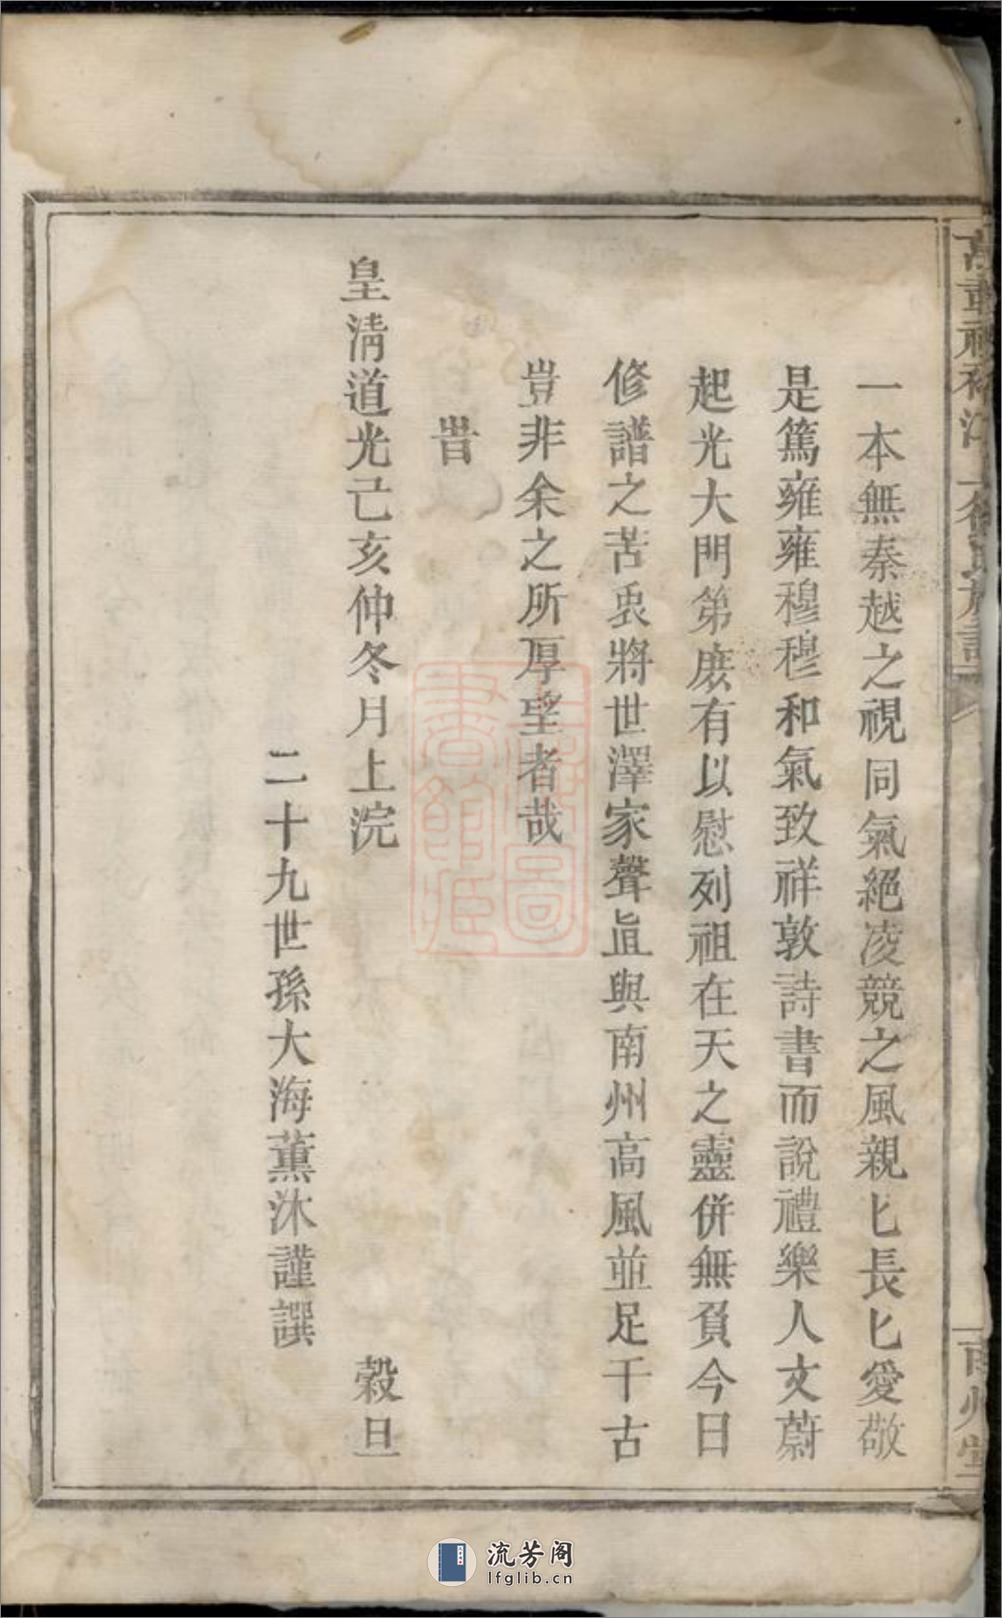 一本無秦越之視同氣絕凌競之風親匕長匕愛敬
是篤雍雍穆穆和氣致祥敦詩書而說禮樂人文蔚
起光大門第庶有以慰列祖在天之靈併無負今日
修譜之苦衷將世澤家聲眞與南州高風並足千古
豈非余之所厚望者哉
旹
皇清道光己亥仲冬月上浣 穀旦
二十九世孫大海薰沐謹譔
南州堂
上海圖書館藏
流芳阁
lfglib.cn